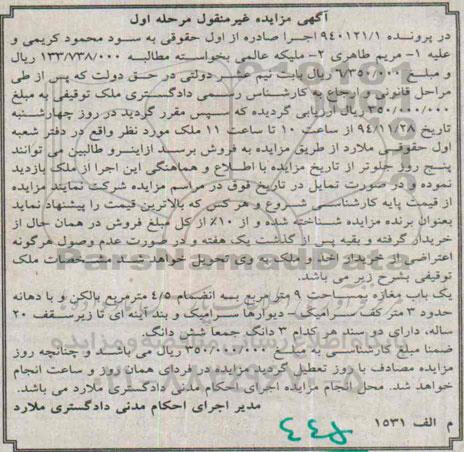 آگهی مزایده غیرمنقول مرحله اول
در پرونده ۹۴۰۱۲۱/۱ اجرا صادره از اول حقوقی به سود محمود کریمی و
علیه ۱- مریم طاهری ۲- ملیکه عالمی بخواسته مطالبه ۱۳۳/۷۳۸/۰۰۰ ریال
و مبلغ ۶/۳۵۰/۰۰۰ ریال بابت نیم عشر دولتی در حق دولت که پس از طی
مراحل قانونی و ارجاع به کارشناس رسمی دادگستری ملک توقیفی به مبلغ
۳۵۰/۰۰۰/۰۰۰ ریال ارزیابی گردیده که سپس مقرر گردید در روز چهارشنبه
تاریخ ۹۴/۱۱/۲۸ از ساعت ۱۰ تا ساعت ۱۱ ملک مورد نظر واقع در دفتر شعبه
اول حقوقی ملارد از طریق مزایده به فروش برسد ازاینرو طالبین می توانند
پنج روز جلوتر از تاریخ مزایده با اطلاع و هماهنگی این اجرا از ملک بازدید
نموده و در صورت تمایل در تاریخ فوق در مراسم مزایده شرکت نمایند مزایده
از قیمت پایه کارشناسی شروع و هر کس که بالاترین قیمت را پیشنهاد نماید
بعنوان برنده مزایده شناخته شده و از ۱۰٪ از کل مبلغ فروش در همان حال از
خریدار گرفته و بقیه پس از گذشت یک هفته و در صورت عدم وصول هرگونه
اعتراضی از خریدار اخذ و ملک به وی تحویل خواهد شد مشخصات ملک
توقیفی بشرح زیر می باشد.
یک باب مغازه بمساحت ۹ متر مربع بسه انضمام ۴/۵ مترمربع بالکن و با دهانه
حدود ۳ متر کف سرامیک - دیوارها سرامیک و بند آینه ای تا زیر سقف ۲۰
ساله، دارای دو سند هر کدام ۳ دانگ جمعا شش دانگ.
ضمنا مبلغ کارشناسی به مبلغ ۳۵۰/۰۰۰/۰۰۰ ریال می باشد و چنانچه روز
مزایده مصادف با روز تعطیل گردید مزایده در فردای همان روز و ساعت انجام
خواهد شد. محل انجام مزایده اجرای احکام مدنی دادگستری ملارد می باشد.
مدیر اجرای احکام مدنی دادگستری ملارد
م الف ۱۵۳۱
۴۴۵
ParsNamadData